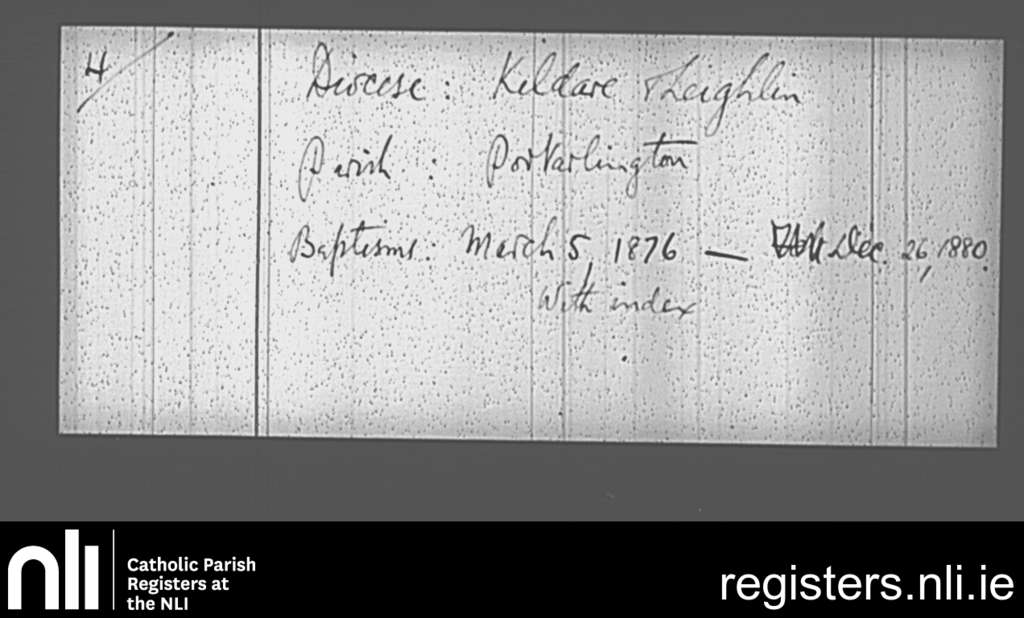 4
Diocese : Kildare & Leighlin
Parish : Portarlington
Baptisms : March 5, 1876 — Dec. 26, 1880.
With index
nli
Catholic Parish
Registers at
the NLI
registers.nli.ie